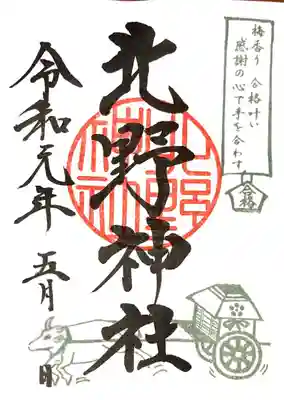 梅香り 合格叶い
感謝の心で手を合わす
合格
北野神社
令和元年 五月 日